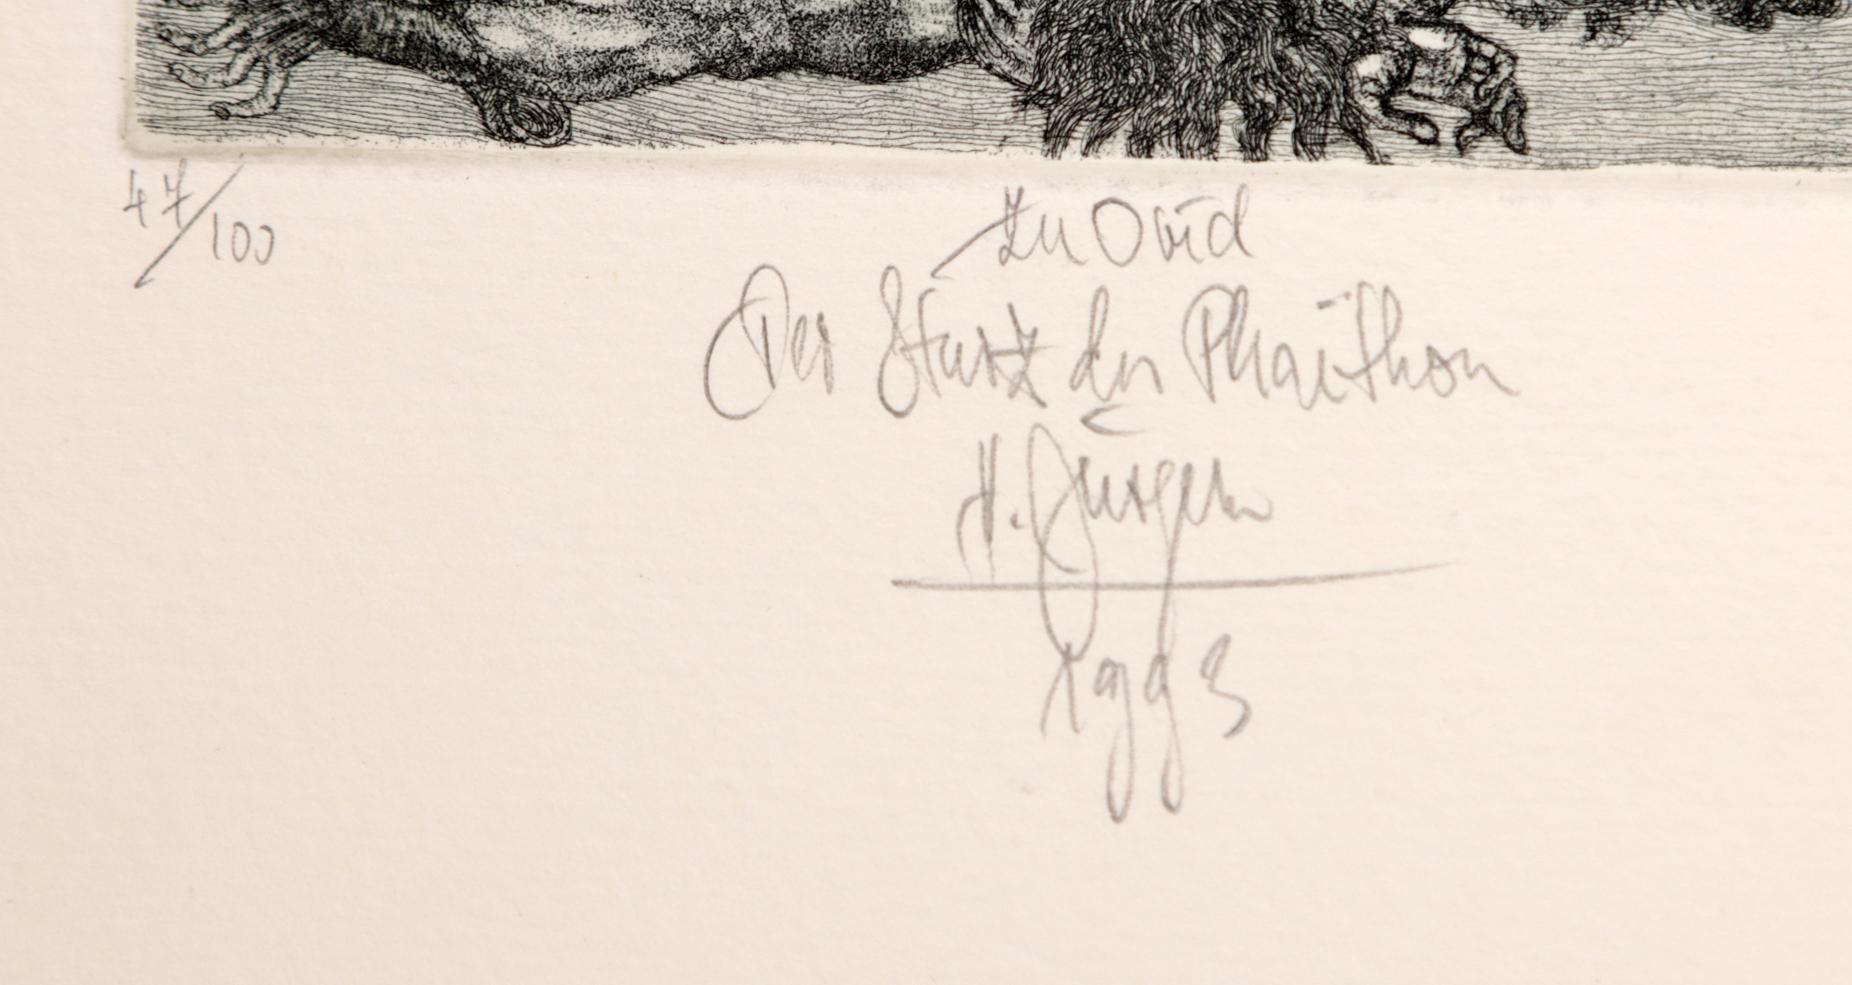 47/100
Zu Ovid
Der Sturz des Phaëthon
H. Jürgen
1993